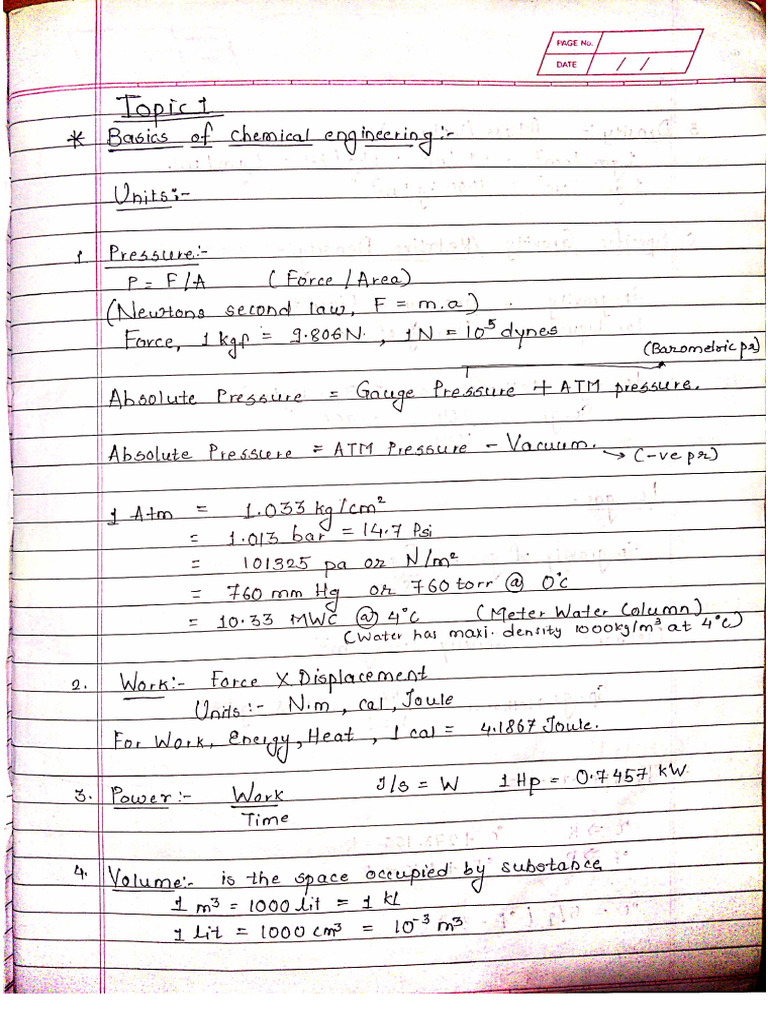 PAGE No.
DATE / /
Topic 1
* Basics of chemical engineering:-
Units:-
1. Pressure:-
P = F/A (Force/Area)
(Newtons second law, F = m.a)
Force, 1 kgf = 9.806N. , 1N = 10⁵ dynes
(Barometric pr)
Absolute Pressure = Gauge Pressure + ATM pressure.
Absolute Pressure = ATM Pressure - Vacuum. → (-ve pr)
1 Atm = 1.033 kg/cm²
= 1.013 bar = 14.7 Psi
= 101325 pa or N/m²
= 760 mm Hg or 760 torr @ 0°c
= 10.33 MWC @ 4°c (Meter Water Column)
(Water has maxi. density 1000kg/m³ at 4°c)
2. Work:- Force X Displacement
Units:- N.m, cal, Joule
For Work, energy, Heat, 1 cal = 4.1867 Joule.
3. Power:- Work J/s = W 1 Hp = 0.7457 kW
Time
4. Volume:- is the space occupied by substance
1 m³ = 1000 lit = 1 kl
1 lit = 1000 cm³ = 10⁻³ m³